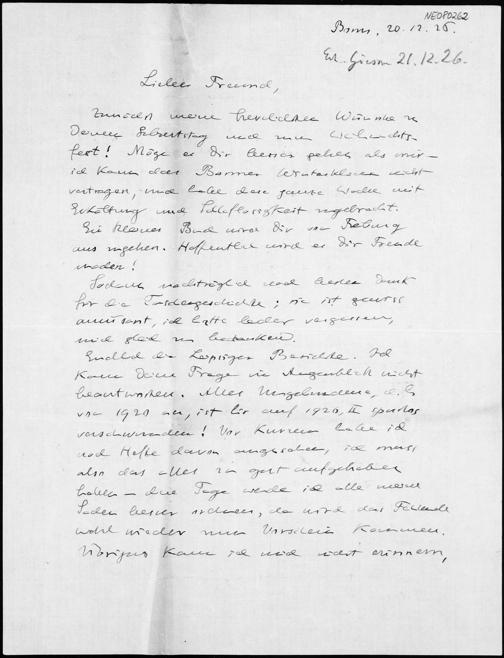 NEOPO262
Bonn, 20.12.26.
Erh. Giessen 21.12.26.
Lieber Freund,
Zunächst meine herzlichsten Wünsche zu
Deinem Geburtstag und zum Weihnachts-
fest! Möge es Dir besser gehen als mir –
ich kann das Bonner Winterklima nicht
vertragen, und habe diese ganze Woche mit
Erkältung und Schlaflosigkeit zugebracht.
Ein kleines Buch wird Dir von Freiburg
aus zugehen. Hoffentlich wird es Dir Freude
machen!
Sodann nachträglich noch besten Dank
für die; sie ist ganz
amüsant, ich hatte leider vergessen,
mich gleich zu bedanken.
Endlich die Leipziger Berichte. Ich
kann Deine Frage im Augenblick nicht
beantworten. Alles Ungebundene, d.h.
von 1920 an, ist bis auf 1926, II spurlos
verschwunden! Vor Kurzem habe ich
noch Hefte davon angesehen, ich muss
also das alles zu gut aufgehoben
haben – dieser Tage werde ich alle meine
Sachen besser ordnen, da wird das Fehlende
wohl wieder zum Vorschein kommen.
Übrigens kann ich mich nicht erinnern,